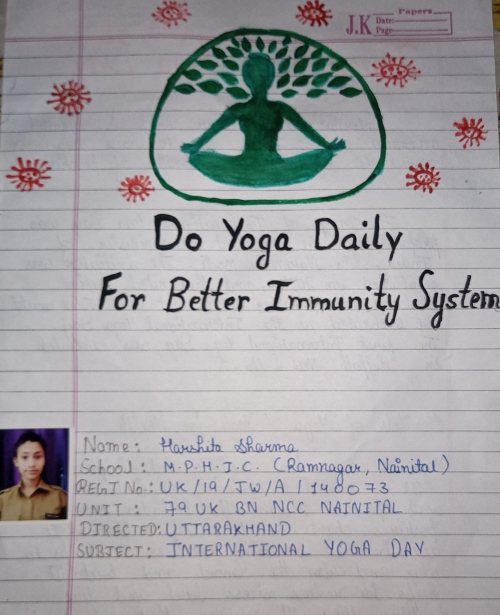 Papers
J.K Date:
Page:
Do Yoga Daily
For Better Immunity System
Name: Harshita Sharma
School: M.P.H.I.C. (Ramnagar, Nainital)
REGT No: UK/19/JW/A/140073
UNIT: 79 UK BN NCC NAINITAL
DIRECTED: UTTARAKHAND
SUBJECT: INTERNATIONAL YOGA DAY